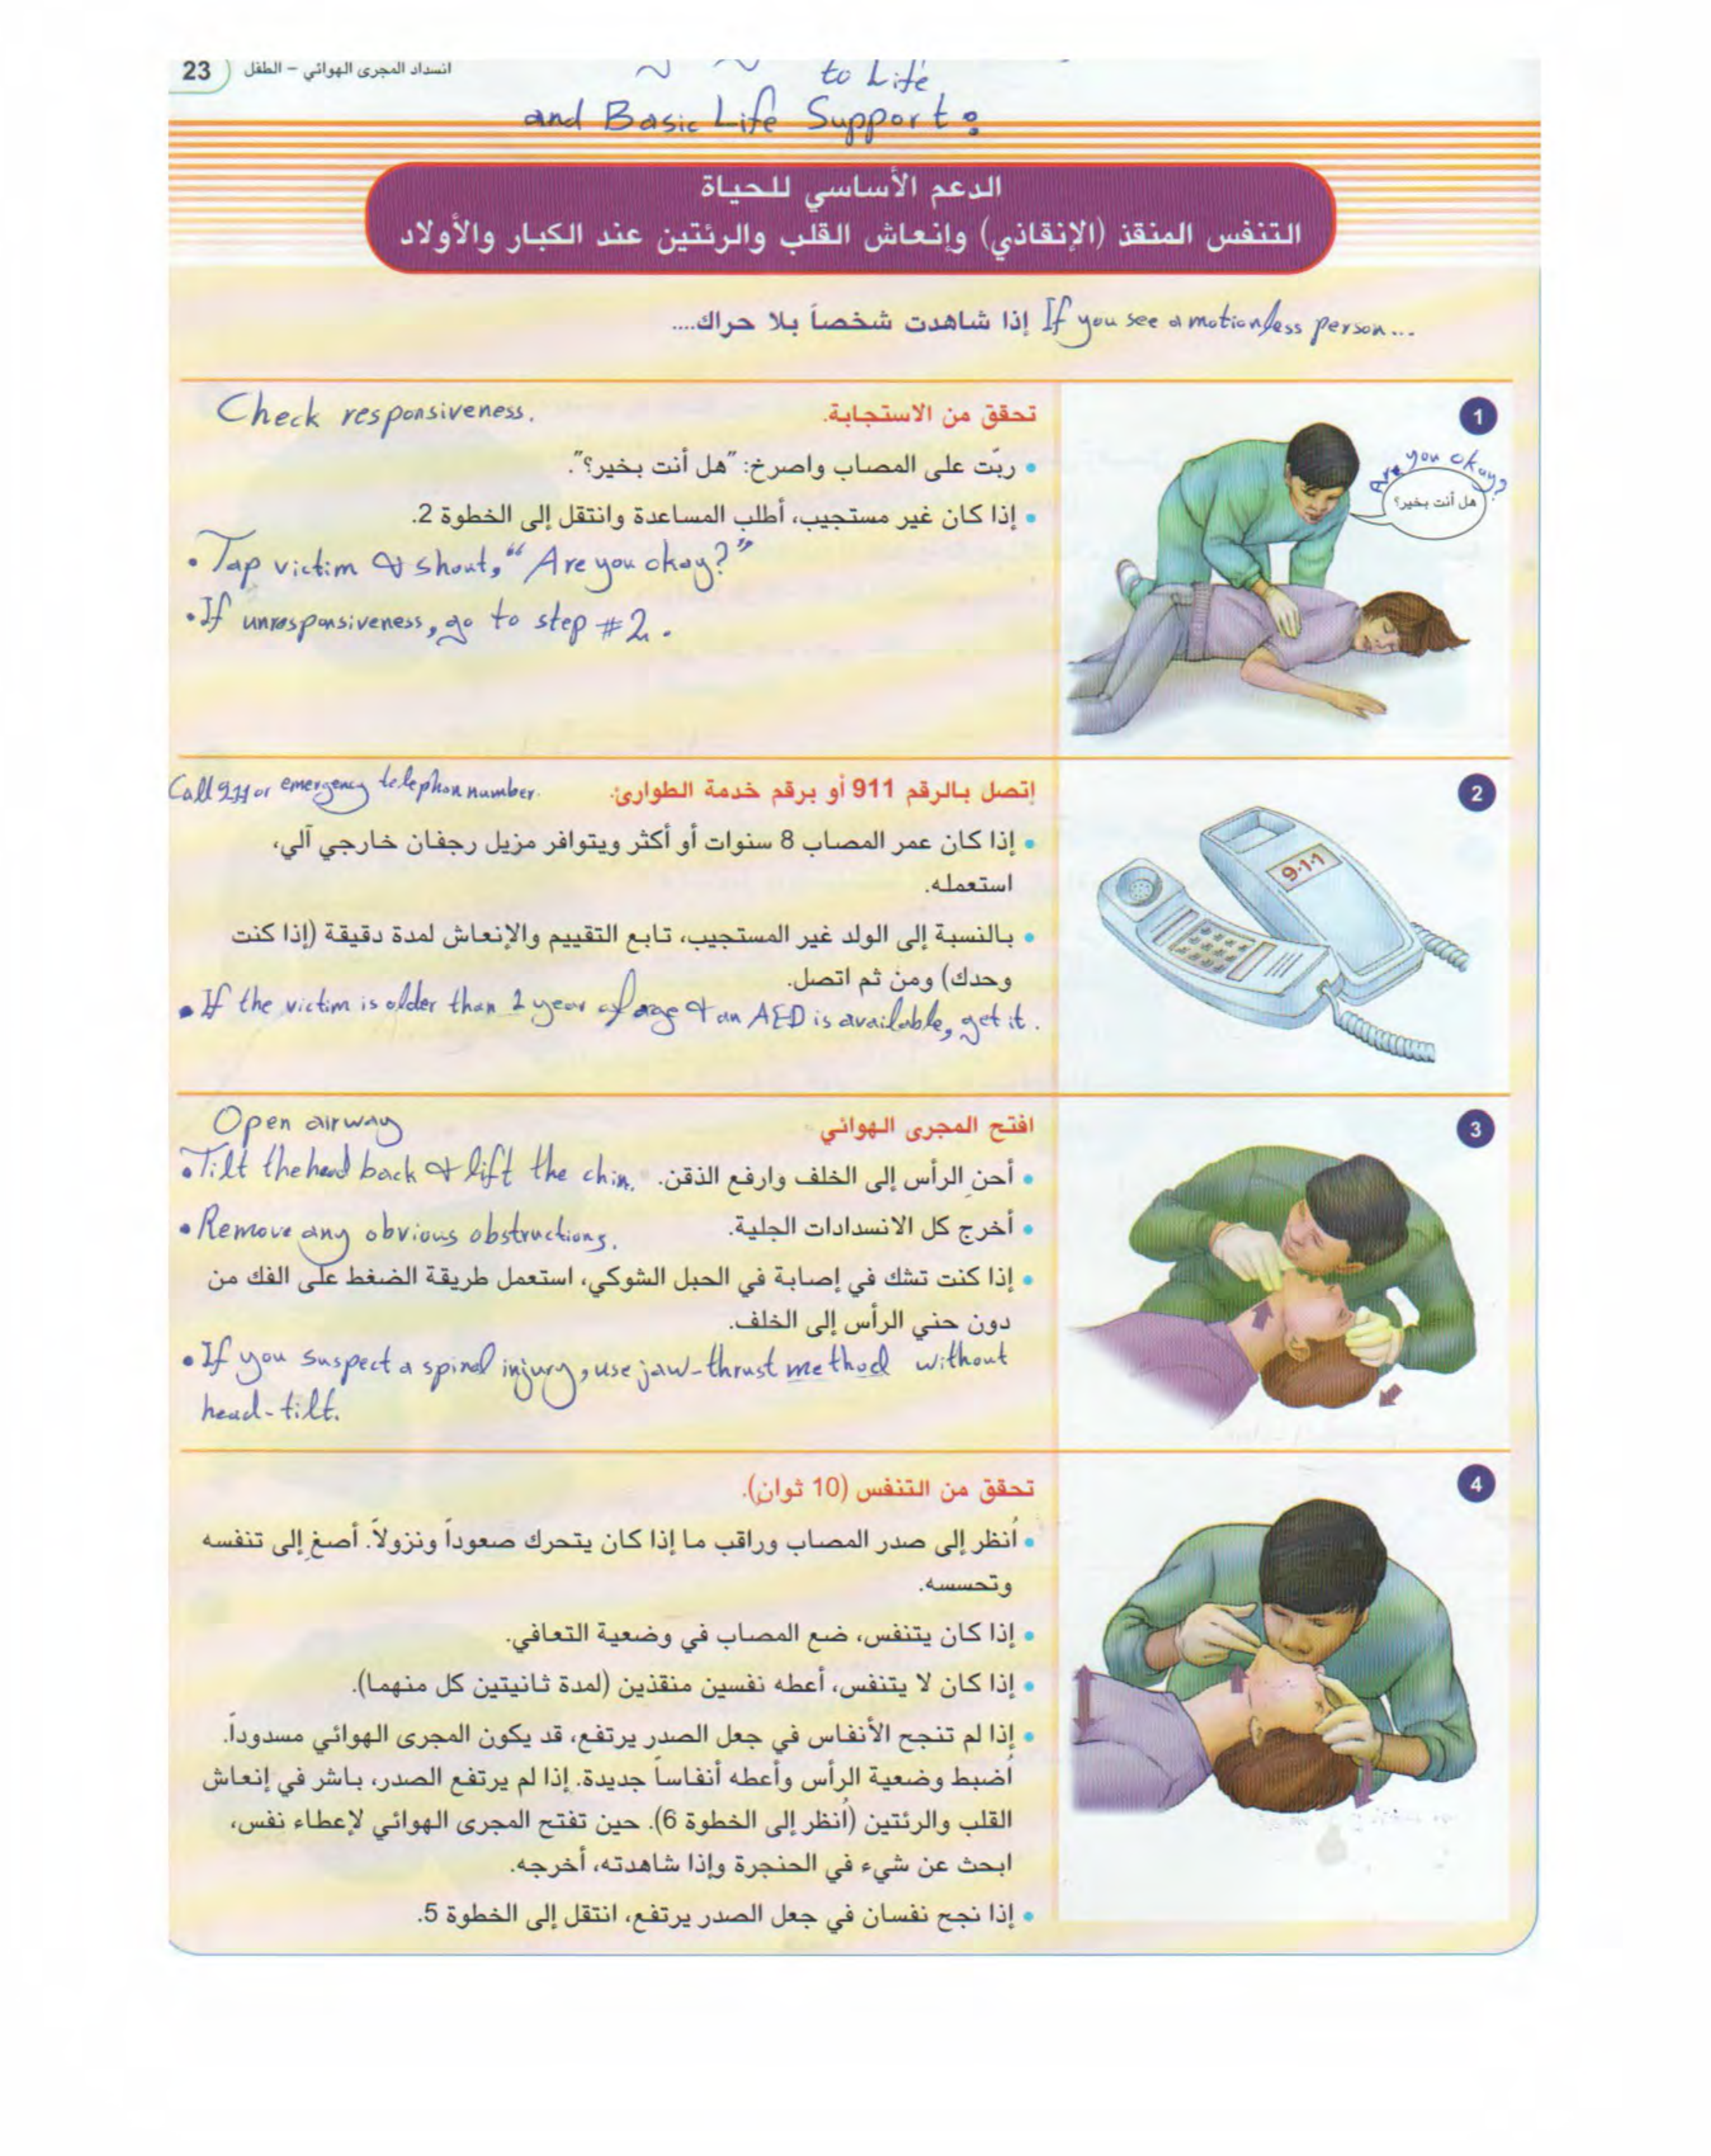 23 انسداد المجرى الهوائي – الطفل
to Life
and Basic Life Support:
الدعم الأساسي للحياة
التنفس المنقذ (الإنقاذي) وإنعاش القلب والرئتين عند الكبار والأولاد
إذا شاهدت شخصاً بلا حراك.... If you see a motionless person...
1
تحقق من الاستجابة. Check responsiveness.
Are you okay?
هل أنت بخير؟
• ربّت على المصاب واصرخ: "هل أنت بخير؟".
• إذا كان غير مستجيب، أطلب المساعدة وانتقل إلى الخطوة 2.
• Tap victim & shout, "Are you okay?"
• If unresponsiveness, go to step #2.
2
إتصل بالرقم 911 أو برقم خدمة الطوارئ. Call 911 or emergency telephon number.
9-1-1
• إذا كان عمر المصاب 8 سنوات أو أكثر ويتوافر مزيل رجفان خارجي آلي،
استعمله.
• بالنسبة إلى الولد غير المستجيب، تابع التقييم والإنعاش لمدة دقيقة (إذا كنت
وحدك) ومن ثم اتصل.
• If the victim is older than 1 year of age & an AED is available, get it.
3
افتح المجرى الهوائي Open airway
• أحنِ الرأس إلى الخلف وارفع الذقن. • Tilt the head back & lift the chin.
• أخرج كل الانسدادات الجلية. • Remove any obvious obstructions.
• إذا كنت تشك في إصابة في الحبل الشوكي، استعمل طريقة الضغط على الفك من
دون حني الرأس إلى الخلف.
• If you suspect a spinal injury, use jaw-thrust method without
head-tilt.
4
تحقق من التنفس (10 ثوانٍ).
• أنظر إلى صدر المصاب وراقب ما إذا كان يتحرك صعوداً ونزولاً. أصغِ إلى تنفسه
وتحسسه.
• إذا كان يتنفس، ضع المصاب في وضعية التعافي.
• إذا كان لا يتنفس، أعطه نفسين منقذين (لمدة ثانيتين كل منهما).
• إذا لم تنجح الأنفاس في جعل الصدر يرتفع، قد يكون المجرى الهوائي مسدوداً.
أضبط وضعية الرأس وأعطه أنفاساً جديدة. إذا لم يرتفع الصدر، باشر في إنعاش
القلب والرئتين (أنظر إلى الخطوة 6). حين تفتح المجرى الهوائي لإعطاء نفس،
ابحث عن شيء في الحنجرة وإذا شاهدته، أخرجه.
• إذا نجح نفسان في جعل الصدر يرتفع، انتقل إلى الخطوة 5.